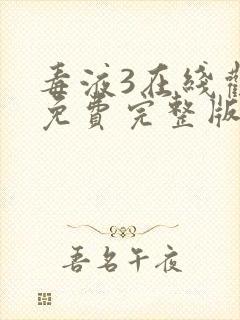 毒液3在线
免費完整版
吾名午夜